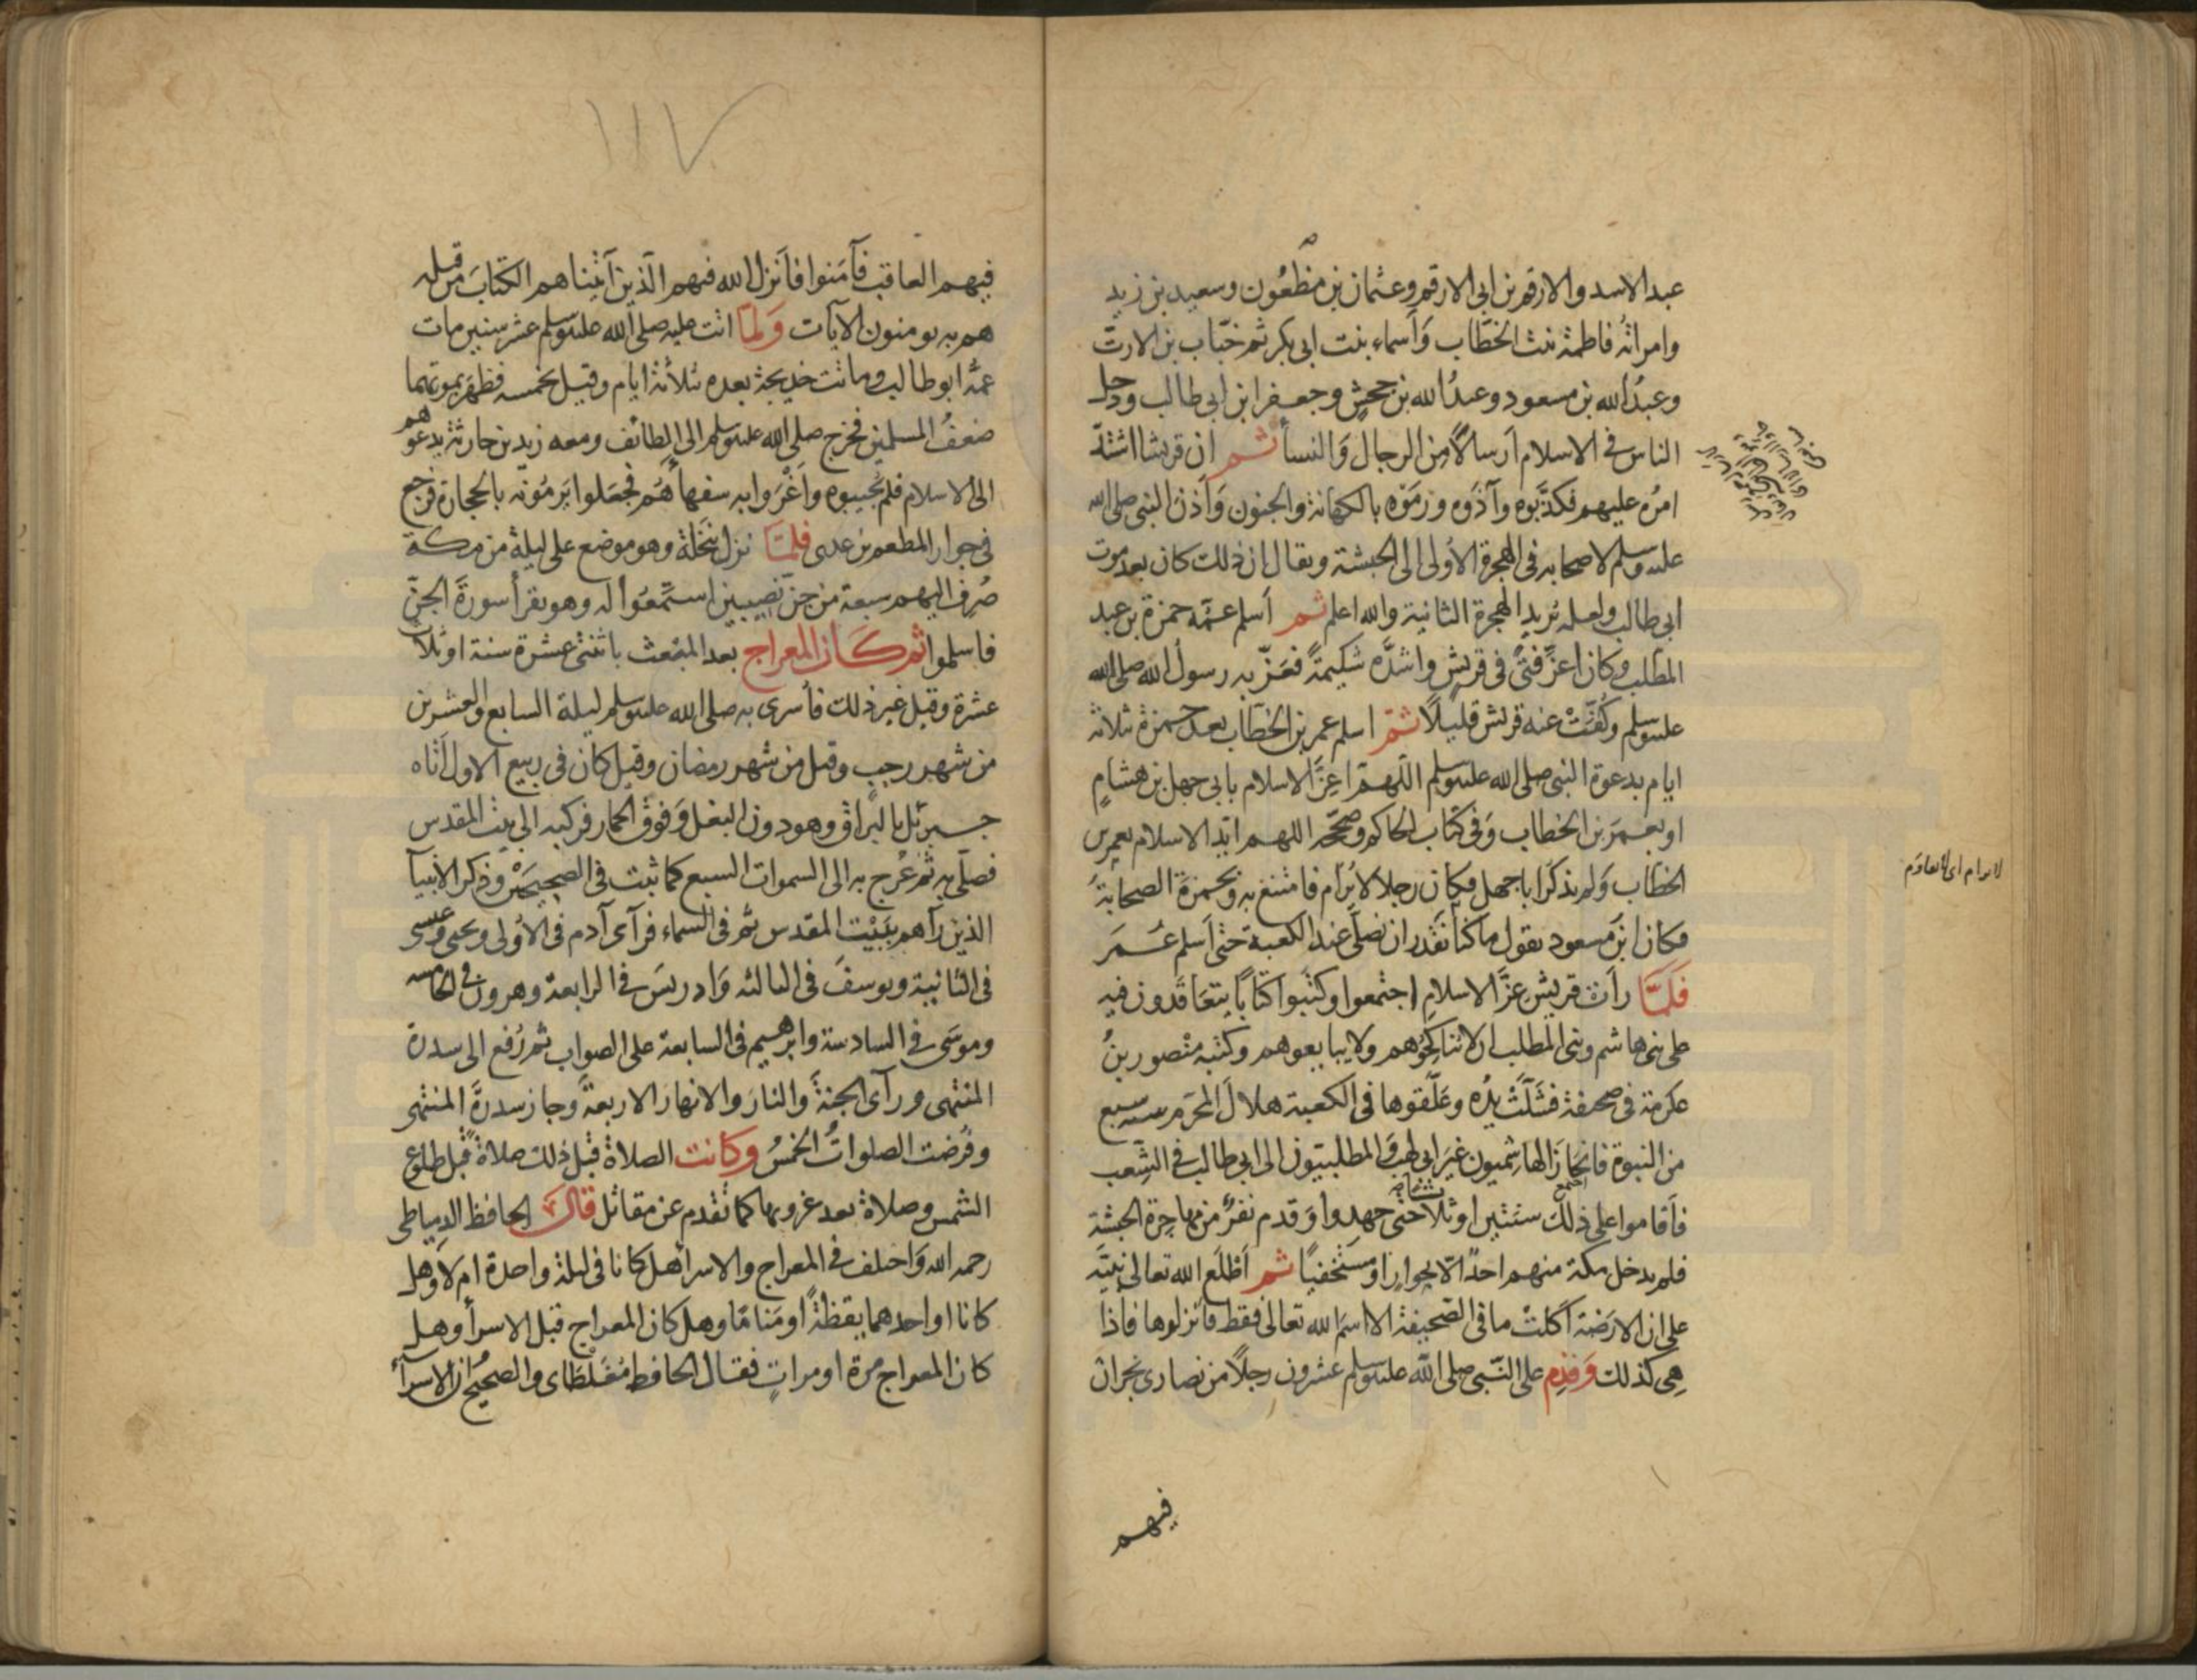 عبد الاسد والارقم بن ابى الارقم وعثمان بن مظعُون وسعيد بن زيد
وامراتُه فاطمة بنت الخطّاب وَأسماء بنت ابى بكر ثم خبّاب بن الارتّ
وعبدُ الله بن مسعود وعبدُ الله بن جحشٍ وجعفر ابن ابى طالب ودخل
الناس فى الاسلام اَرسالًا مِن الرجال وَالنسأ ثم ان قريشا اشتدّ
امرُه عليهم فكذّبوه وآذَوه ورمَوْه بالكهانة والجنون وَأذنَ النبى صلى الله
عليه وسلم لاصحابه فى الهجرة الأولى الى الحبشة ويقال ان ذلك كان بعد موت
ابى طالب ولعله يُريد الهجرة الثانية والله اعلم ثم أسلم عمّه حمزة بن عبد
المطّلب وكان اعزَّ فتًى فى قريش واشدَّه شكيمةً فعَزّ به رسولُ الله صلى الله
عليه وسلم وكُفَّتْ عنه قريش قليلًا ثمّ اسلم عمر بن الخطّاب بعد حمزة بثلاثة
ايام بدعوة النبى صلى الله عليه وسلم اللهمّ اعِزَّ الاسلام بابى جهل بن هشامٍ
او بعمرَ بن الخطاب وَفى كتاب الحاكم وصحّحه اللهم ايّد الاسلام بعمر بن
الخطّاب وَلم يذكر ابا جهل فكان رجلا لا يُرام فامتنع به وبحمزةَ الصحابةُ
فكان ابن مسعود يقول ما كنا نقدر ان نصلّى عند الكعبة حتى أسلم عُمَر
فَلمَّا رأت قريش عزَّ الاسلام اجتمعوا وكتبوا كتابًا يتعَاقدون فيه
على بنى هاشم وبنى المطلب ان لا يناكحُوهم ولا يبايعوهم وكتبه منصور بنُ
عكرمة فى صحيفة فشَلَّتْ يدُه وعَلّقوها فى الكعبة هلالَ المحرّم سنه سبع
من النبوة فانحَازَ الهاشميون غيرَ ابى لهب وَالمطلبيّون الى ابى طالب فى الشِعب
فأقاموا على ذلك سنتين او ثلاثا حتى جهدوا وَقدم نفرٌ من مهاجرة الحبشة
فلم يدخل مكة منهم احدٌ الّا بجوارٍ او مستخفيًا ثم أطلَع الله تعالى نبيّه
على ان الارَضة اكلَتْ ما فى الصّحيفة الا اسمَ الله تعالى فقط فأنزلوها فاذا
هِى كذلك وَقدِم على النّبى صلى الله عليه وسلم عشرون رجلًا من نصارى نجران
فيهم
١١٧
فيهم العاقب فآمَنوا فأنزل الله فيهم الَّذين آتيناهم الكتابَ من قبله
هم به يومنون الآيات وَلمّا اتت عليه صلى الله عليه وسلم عشر سنين مات
عمُّه ابو طالب وماتت خديجة بعده بثلاثة ايام وقيل بخمسه فظهَر بموتهما
ضعفُ المسلمين فخرج صلى الله عليه وسلم الى الطائف ومعه زيد بن حارثة يدعوهم
الى الاسلام فلم يجيبوه واَغْرَوا به سفهآءَهُم فجعَلوا يَرمُونه بالحجارة فرجع
فى جوار المطعم بن عدى فلمَّا نزل بنَخلة وهو موضع على ليلة من مكة
صُرِف اليهم سبعة من جنّ نصِيبين استَمعُوا له وهو يقرأ سورةَ الجنّ
فاسلموا ثم كان المعراج بعد المبْعث باثنتى عشرة سنة او ثلاث
عشرة وقيل غير ذلك فأسرى به صلى الله عليه وسلم ليلة السابع والعشرين
من شهر رجب وقيل من شهر رمضان وقيل كان فى ربيع الاول أتاه
جبرئل بالبُراق وهو دون البغل وَفوق الحمار فركبه الى بيت المقدس
فصلّى به ثم عُرج به الى السموات السبع كما ثبت فى الصحيحَيْن وذكر الأنبيآ
الذين رآهم ببَيْت المقدس ثم فى السّماء فرآى آدم فى الاُولى ويحيى وعيسى
فى الثانية ويوسفَ فى الثالثه وَادريسَ فى الرابعة وهرون فى الخامسه
وموسَى فى السادسة وابرهيم فى السابعة على الصواب ثم رُفع الى سدرة
المنتهى ورآى الجنةَ والنارَ والانهارَ الاربعةَ وجازَ سدرةَ المنتهى
وفُرضت الصلواتُ الخمسُ وكانت الصلاة قبل ذلك صلاةً قبل طلوع
الشمس وصلاة بعد غروبها كما تقدم عن مقاتل قال الحافظ الدِمياطى
رحمه الله وَاختلف فى المعراج والاسرا هل كانا فى ليلة واحدة ام لا وهل
كانا او احدهما يقظةً او مَنامًا وهل كان المعراج قبل الاسرأ وهل
كان المعراج مرة او مراتٍ فقال الحافظ مُغَلْطَاى والصحيحُ ان الاسرآءَ